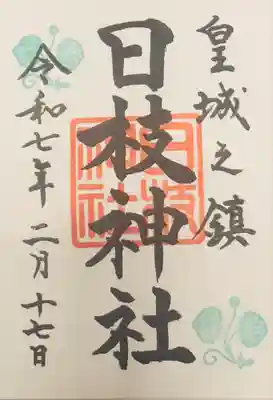 皇城之鎮
日枝神社
令和七年二月十七日
日枝
神社